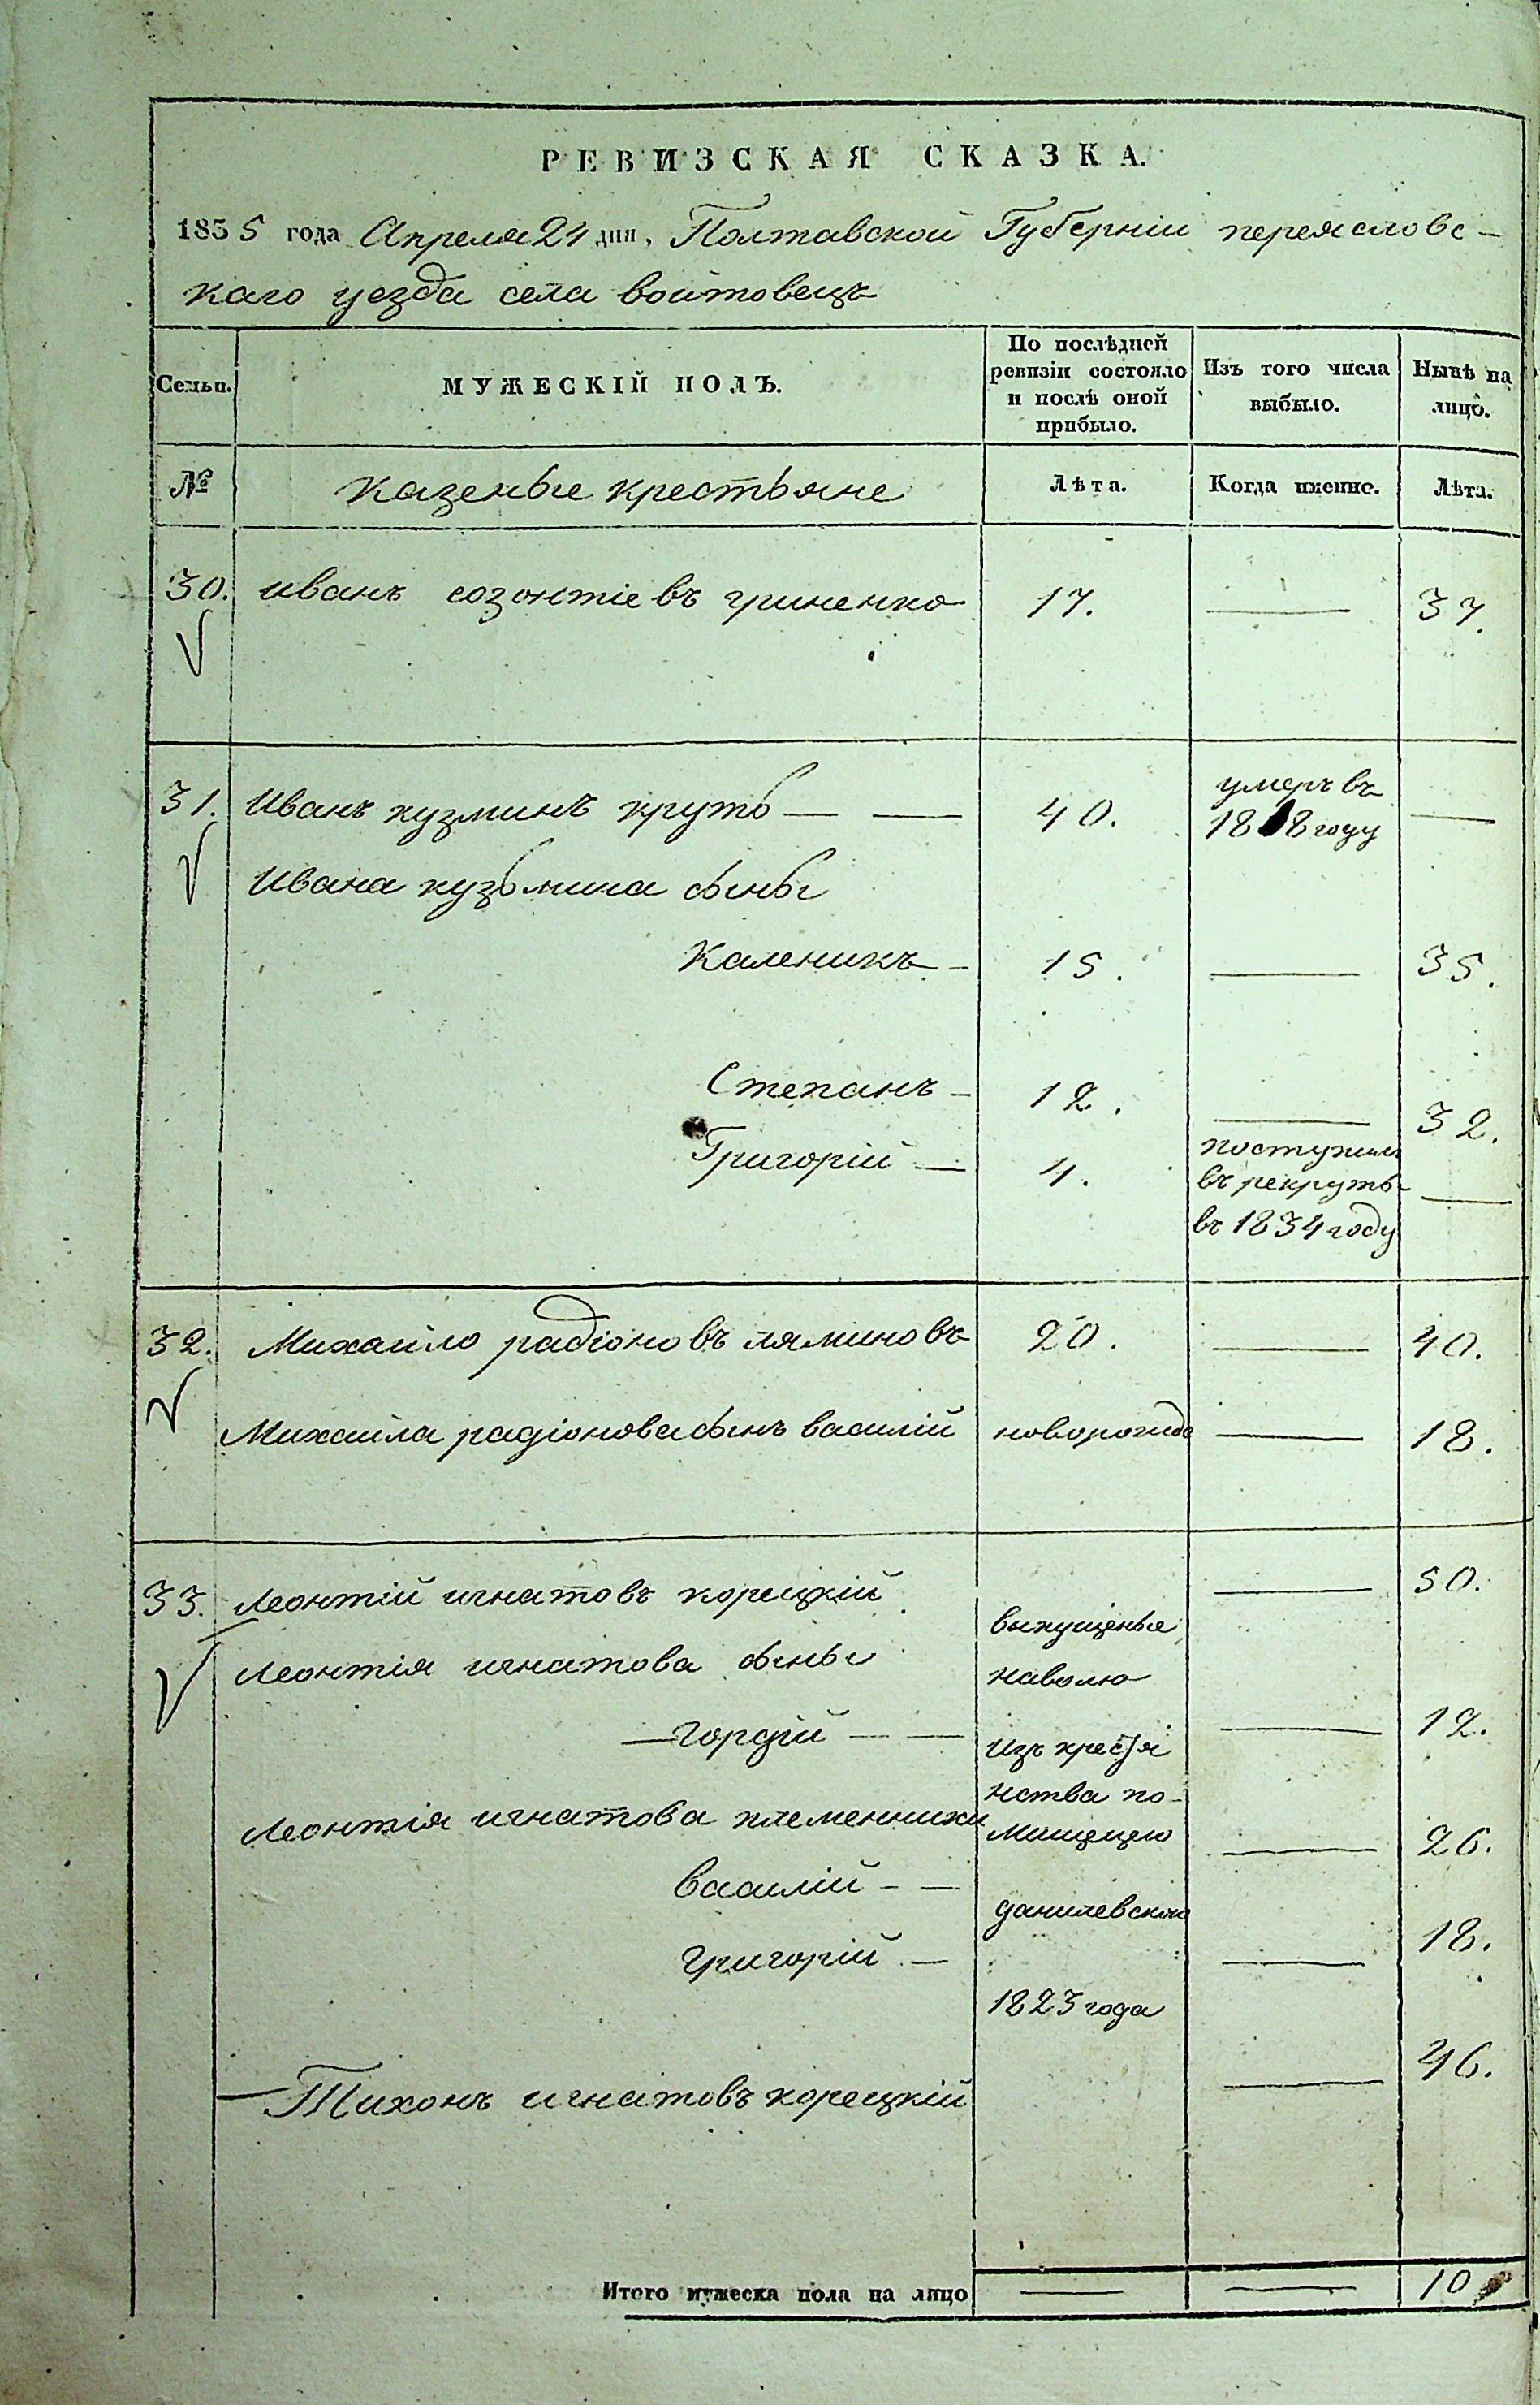 РЕВИЗСКАЯ СКАЗКА.
1835 года Апреля 24 дня, Полтавской Губерніи переяславс-
каго уезда села войтовецъ
Семьи. МУЖЕСКІЙ ПОЛЪ. По послѣдней ревизіи состояло и послѣ оной прибыло. Изъ того числа выбыло. Нынѣ на лицо.
№ казеные крестьяне Лѣта. Когда именно. Лѣта.
30. иванъ созонтіевъ гриненко 17. — 37.
31. Иванъ кузминъ крутъ — — 40. умеръ въ 18 8 году —
Ивана кузьмина сыны
Каленикъ — 15. — 35.
Степанъ — 12. — 32.
Григорій — 4. поступил въ рекруты въ 1834 году —
32. Михайло радіоновъ ляминовъ 20. — 40.
Михаила радіонова сынъ василій новорожде — 18.
33. Леонтій игнатовъ корецкій — 50.
Леонтія игнатова сыны
выпущеные
наволю
— гордій — — — 12.
изъ крестья
нства по-
Леонтія игнатова племенники
мещецею
— 26.
василій — —
данилевскою
григорій — — 18.
1823 года
— Тихонъ игнатовъ корецкій — 46.
Итого мужеска пола на лицо — — 10